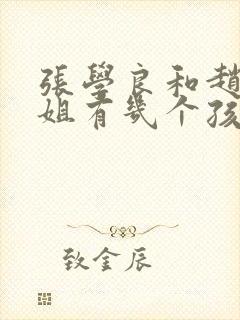 張學良和趙
姐有幾个孩
致金辰